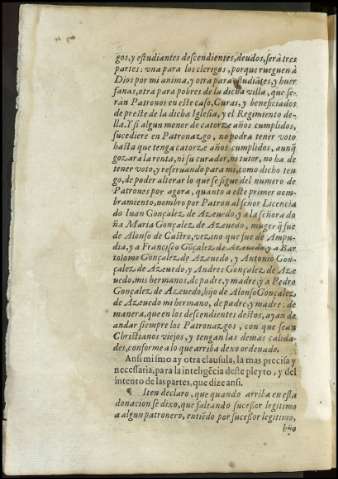 gos, y estudiantes descendientes, deudos, será tres
partes: vna para los clerigos, porque rueguen à
Dios por mi anima, y otra para estudiātes, y huer
fanas, otra para pobres de la dicha villa, que se-
ran Patronos en este caso, Curas, y beneficiados
de preste de la dicha Iglesia, y el Regimiento de-
lla. Y si algun menor de catorze años cumplidos,
sucediere en Patronazgo, no podra tener voto
hasta que tenga catorze años cumplidos, aunq̃
gozara la renta, ni su curador, ni tutor, no ha de
tener voto, y reseruando para mi, como dicho ten
go, de poder alterar lo que se sigue del numero de
Patrones por agora, quanto a este primer nom-
bramiento, nombro por Patron al señor Licencia
do Iuan Gonçalez de Azeuedo, y a la señora do
ña Maria Gonçalez de Azeuedo, muger q̃ fue
de Alonso de Castro, vezino que fue de Ampu-
dia, y a Francisco Gõçalez de Azeuedo, y a Bar
tolome Gonçalez de Azeuedo, y Antonio Gon-
çalez de Azeuedo, y Andres Gonçalez de Aze
uedo, mis hermanos, de padre, y madre, y a Pedro
Gonçalez de Azeuedo, hijo de Alonso Gonçalez
de Azeuedo mi hermano, de padre, y madre: de
manera, que en los descendientes destos, ayan de
andar siempre los Patronazgos, con que sean
Christianos viejos, y tengan las demas calida-
des, conforme a lo que arriba dexo ordenado.
Ansi mismo ay otra clausula, la mas precisa y
necessaria, para la inteligēcia deste pleyto, y del
intento de las partes, que dize ansi.
¶ Iten declaro, que quando arriba en esta
donacion se dixo, que faltando sucessor legitimo
a algun patronero, entiēdo por sucessor legitimo,
hijo